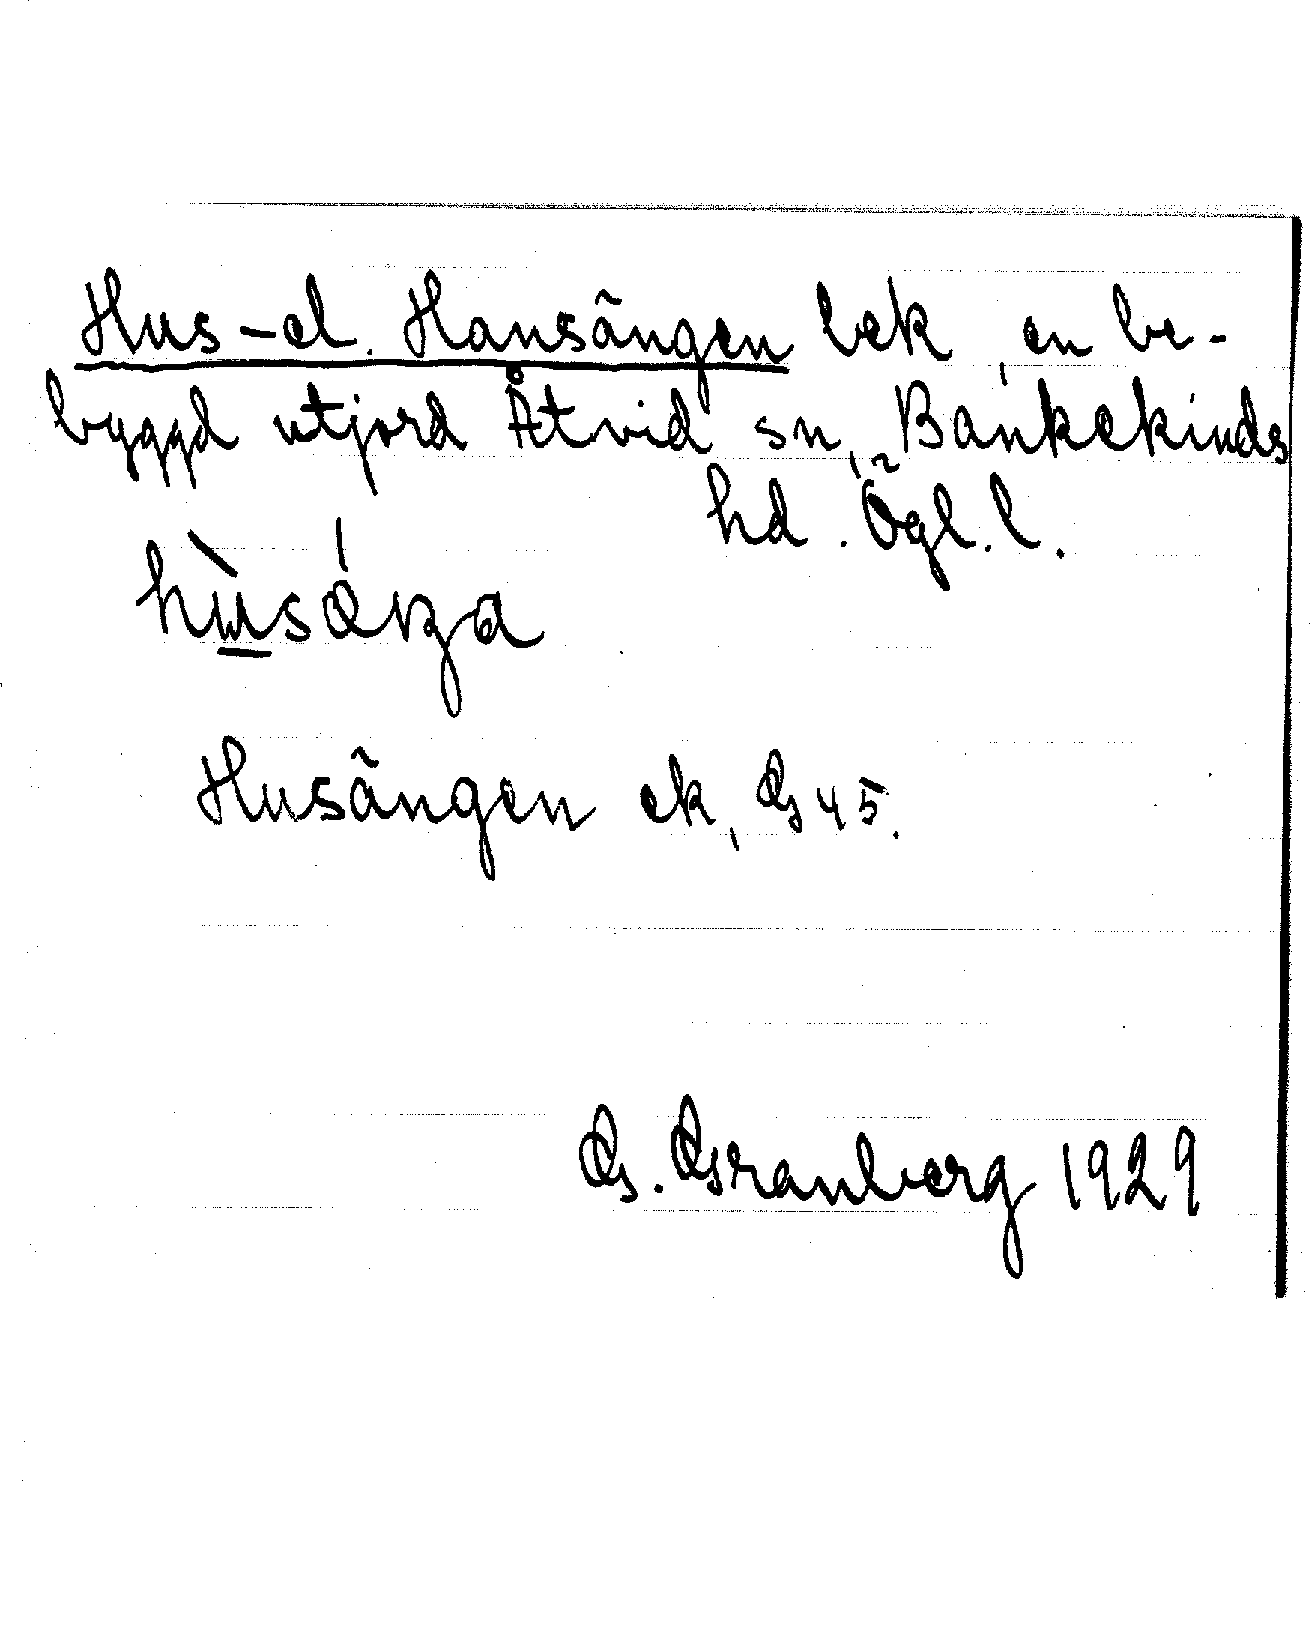 Hus- el. Hansängen bek, en be-
byggd utjord Åtvid sn, Bankekinds
hd. Ögl. l.
Husängen ek, Gs 45.
G. Granberg 1929